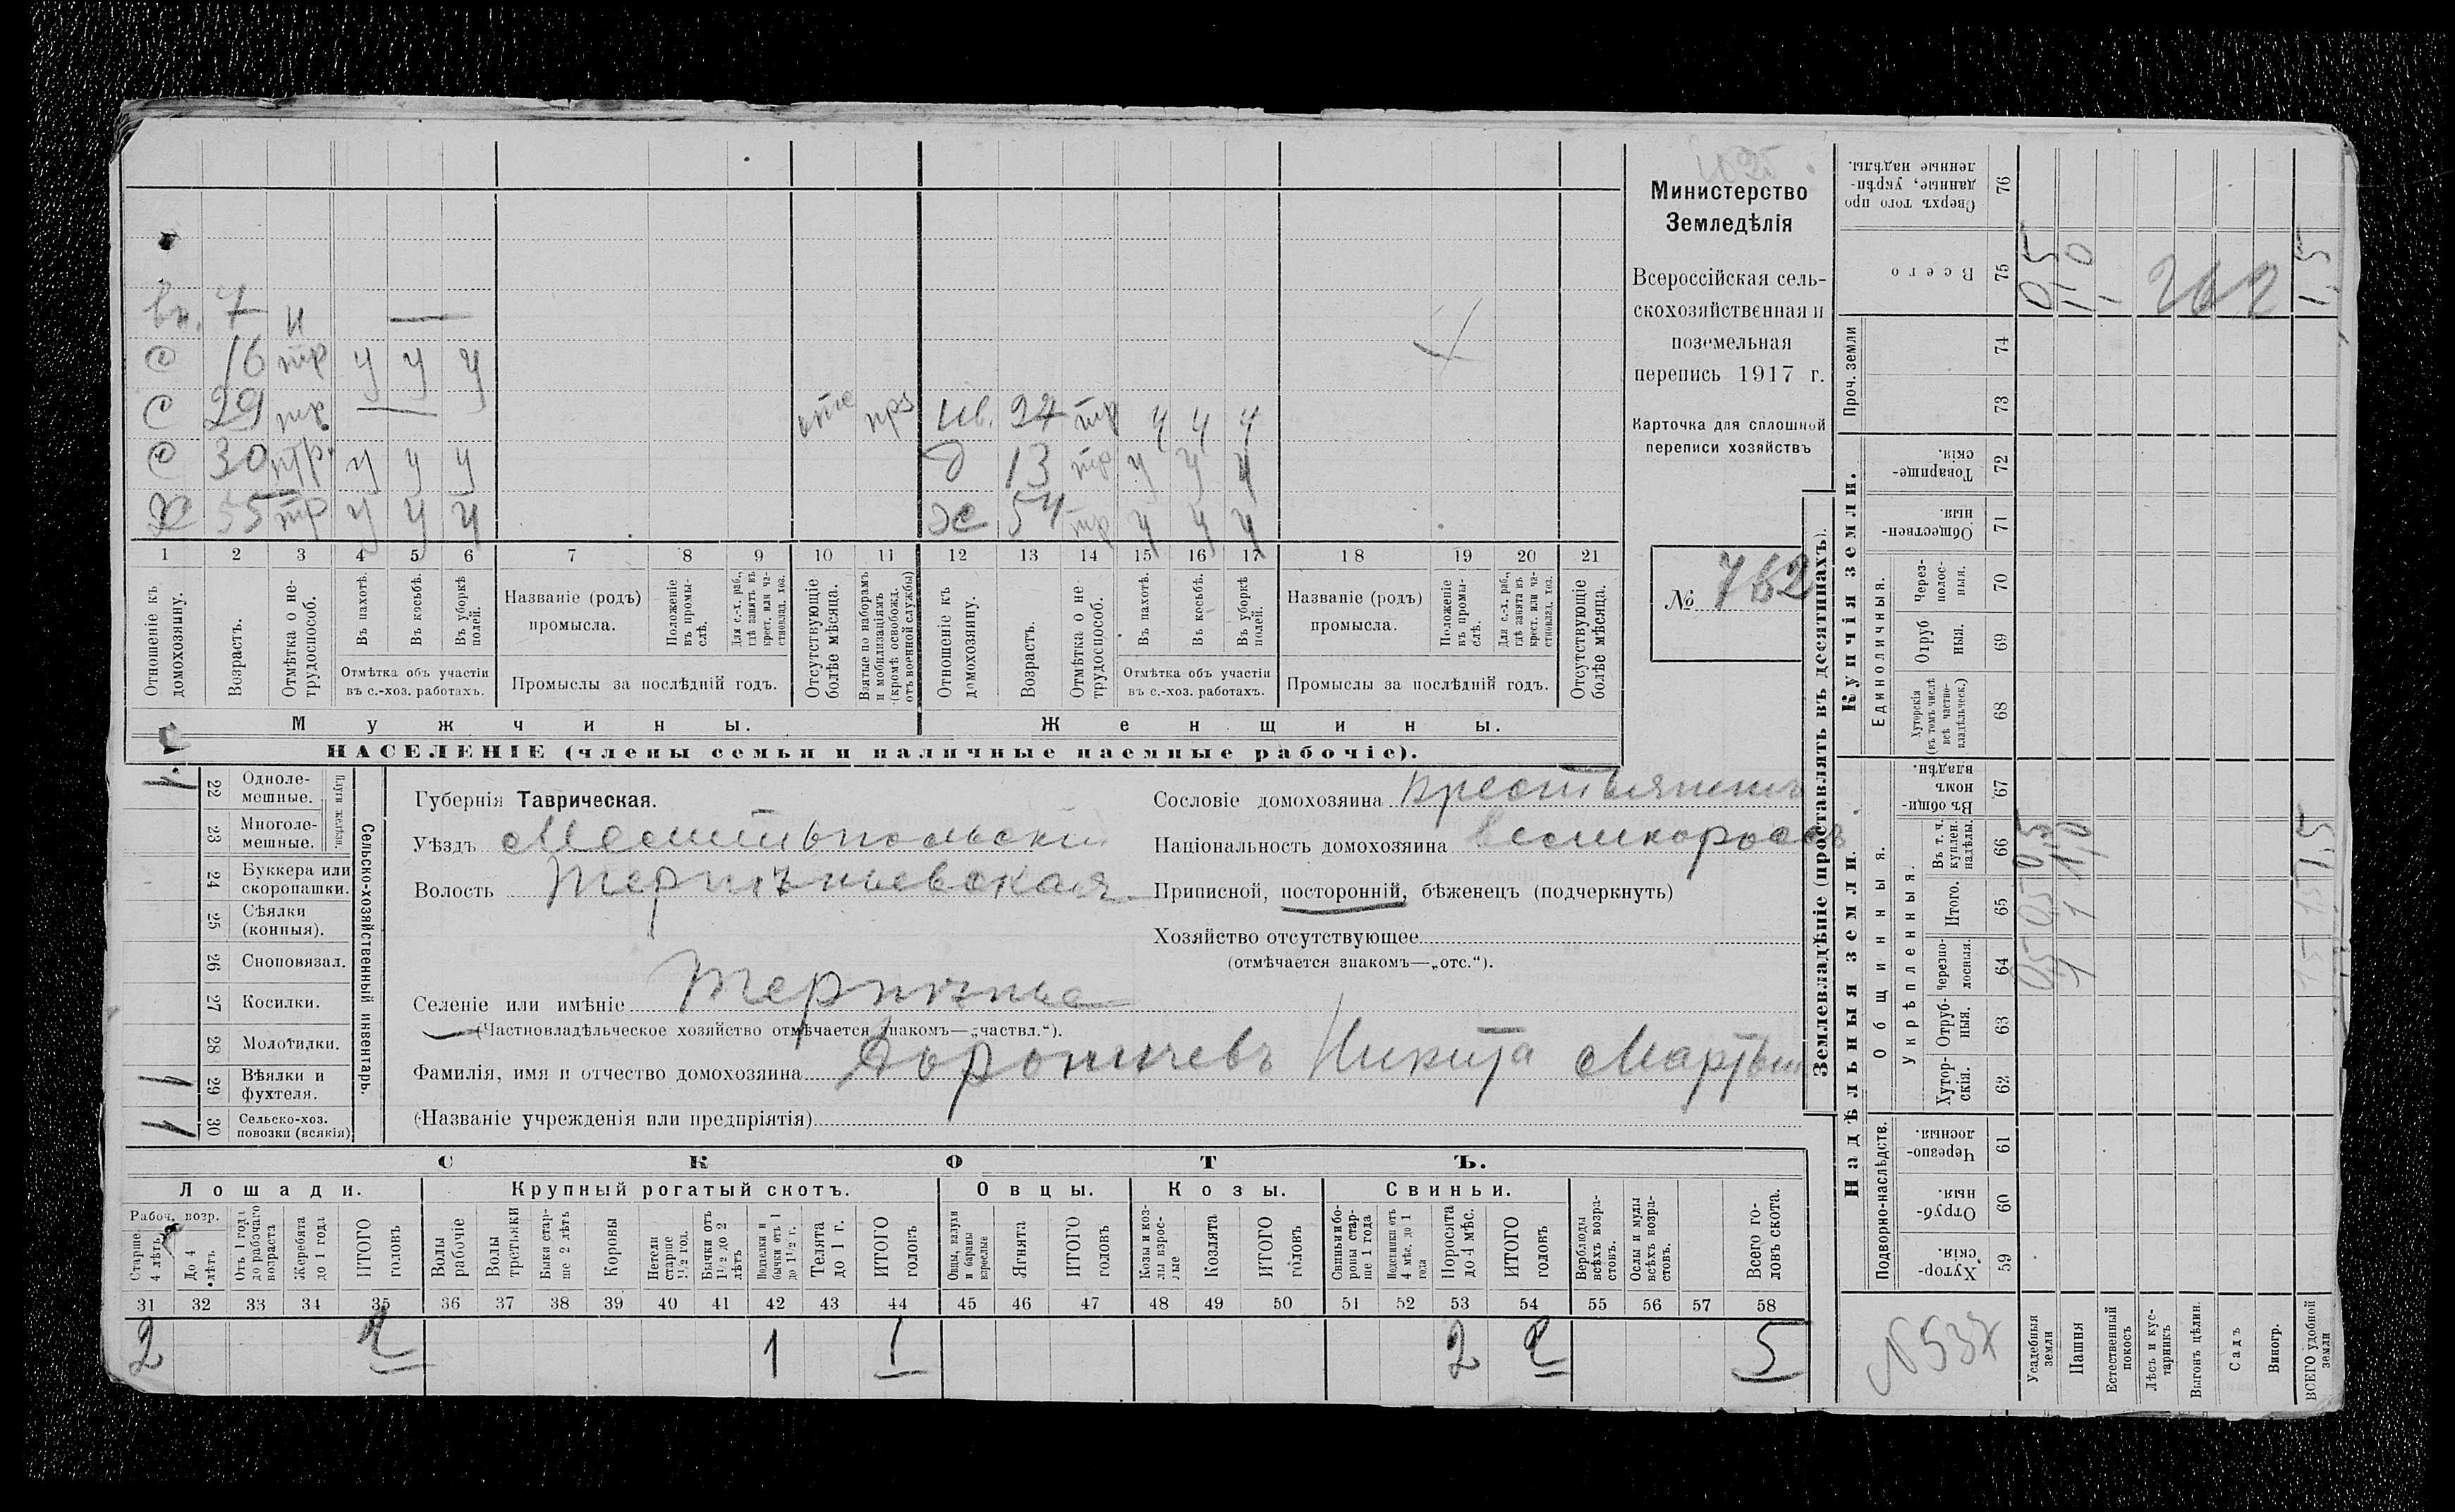 Министерство
Земледѣлія
Всероссійская сель-
скохозяйственная и
поземельная
перепись 1917 г.
Карточка для сплошной
переписи хозяйствъ
№ 762
вн. 7 н —
с 16 тр у у у
с 29 тр — отс Ив. 27 тр у у у
с 30 тр. у у у д 13 тр у у у
х 55 тр у у у ж 54 тр у у у
1 2 3 4 5 6 7 8 9 10 11 12 13 14 15 16 17 18 19 20 21
Отношеніе къ домохозяину.
Возрастъ.
Отмѣтка о не-трудоспособ.
Въ пахотѣ.
Въ косьбѣ.
Въ уборкѣ полей.
Отмѣтка объ участіи въ с.-хоз. работахъ.
Названіе (родъ) промысла.
Положеніе въ промы-слѣ.
Для с.-х. раб., гдѣ занятъ въ крест. или ча-стновлад. хоз.
Промыслы за послѣдній годъ.
Отсутствующіе болѣе мѣсяца.
Взятые по наборамъ и мобилизаціямъ (кромѣ освобожд. отъ военной службы)
Отношеніе къ домохозяину.
Возрастъ.
Отмѣтка о не-трудоспособ.
Въ пахотѣ.
Въ косьбѣ.
Въ уборкѣ полей.
Отмѣтка объ участіи въ с.-хоз. работахъ.
Названіе (родъ) промысла.
Положеніе въ промы-слѣ.
Для с.-х. раб., гдѣ занята въ крест. или ча-стновлад. хоз.
Промыслы за послѣдній годъ.
Отсутствующіе болѣе мѣсяца.
Мужчины. Женщины.
НАСЕЛЕНІЕ (члены семьи и наличные наемные рабочіе).
Сельско-хозяйственный инвентарь.
Плуги желѣзн.
22 Одноле-мешные. 1
23 Многоле-мешные.
24 Буккера или скоропашки.
25 Сѣялки (конныя).
26 Сноповязал.
27 Косилки.
28 Молотилки.
29 Вѣялки и фухтеля. 1 1
30 Сельско-хоз. повозки (всякія) 1 1
Губернія Таврическая.
Уѣздъ Мелитопольскій
Волость Терпѣньевская
Селеніе или имѣніе Терпѣнье
(Частновладѣльческое хозяйство отмѣчается знакомъ—„частвл.“).
Фамилія, имя и отчество домохозяина Дороничевъ Никита Мартын
(Названіе учрежденія или предпріятія)
Сословіе домохозяина крестьянинъ
Національность домохозяина великороссъ
Приписной, посторонній, бѣженецъ (подчеркнуть)
Хозяйство отсутствующее
(отмѣчается знакомъ—„отс.“).
СКОТЪ.
Лошади. Крупный рогатый скотъ. Овцы. Козы. Свиньи.
Рабоч. возр.
Старше 4 лѣтъ.
До 4 лѣтъ
Отъ 1 года до рабочаго возраста
Жеребята до 1 года
ИТОГО головъ
Волы рабочіе
Волы третьяки
Быки стар-ше 2 лѣтъ
Коровы
Нетели старше 1½ год.
Бычки отъ 1½ до 2 лѣтъ
Подтелки и бычки отъ 1 до 1½ г.
Телята до 1 г.
ИТОГО головъ
Овцы, валухи и бараны взрослые
Ягнята
ИТОГО головъ
Козы и коз-лы взрос-лые
Козлята
ИТОГО головъ
Свиньи и бо-ровы стар-ше 1 года
Подсвинки отъ 4 мѣс. до 1 года
Поросята до 4 мѣс.
ИТОГО головъ
Верблюды всѣхъ возра-стовъ.
Ослы и мулы всѣхъ возра-стовъ.
Всего го-ловъ скота.
31 32 33 34 35 36 37 38 39 40 41 42 43 44 45 46 47 48 49 50 51 52 53 54 55 56 57 58
2 2 1 1 2 2 5
Землевладѣніе (проставлять въ десятинахъ).
Надѣльныя земли. Купчія земли. Проч. земли
Подворно-наслѣдств. Общинныя. Укрѣпленныя. Единоличныя.
59 Хутор-скія.
60 Отруб-ныя.
61 Черезпо-лосныя.
62 Хутор-скія.
63 Отруб-ныя.
64 Черезпо-лосныя.
65 Итого.
66 Въ т. ч. куплен. надѣлы.
67 Въ общин-номъ владѣн.
68 Хуторскія (въ томъ числѣ всѣ частно-владѣльческ.)
69 Отруб ныя.
70 Через-полос-ныя.
71 Обществен-ныя.
72 Товарище-скія.
73
74
75 Всего
76 Сверхъ того про данные, укрѣп-ленные надѣлы.
Усадебныя земли 05 05 0,5 0,5
Пашня 1 1 1,0 1,0
Естественный покосъ
Лѣсъ и кус-тарникъ
Выгонъ цѣлин.
Садъ
Виногр.
ВСЕГО удобной земли 15 15 1,5 1,5
262
N 537